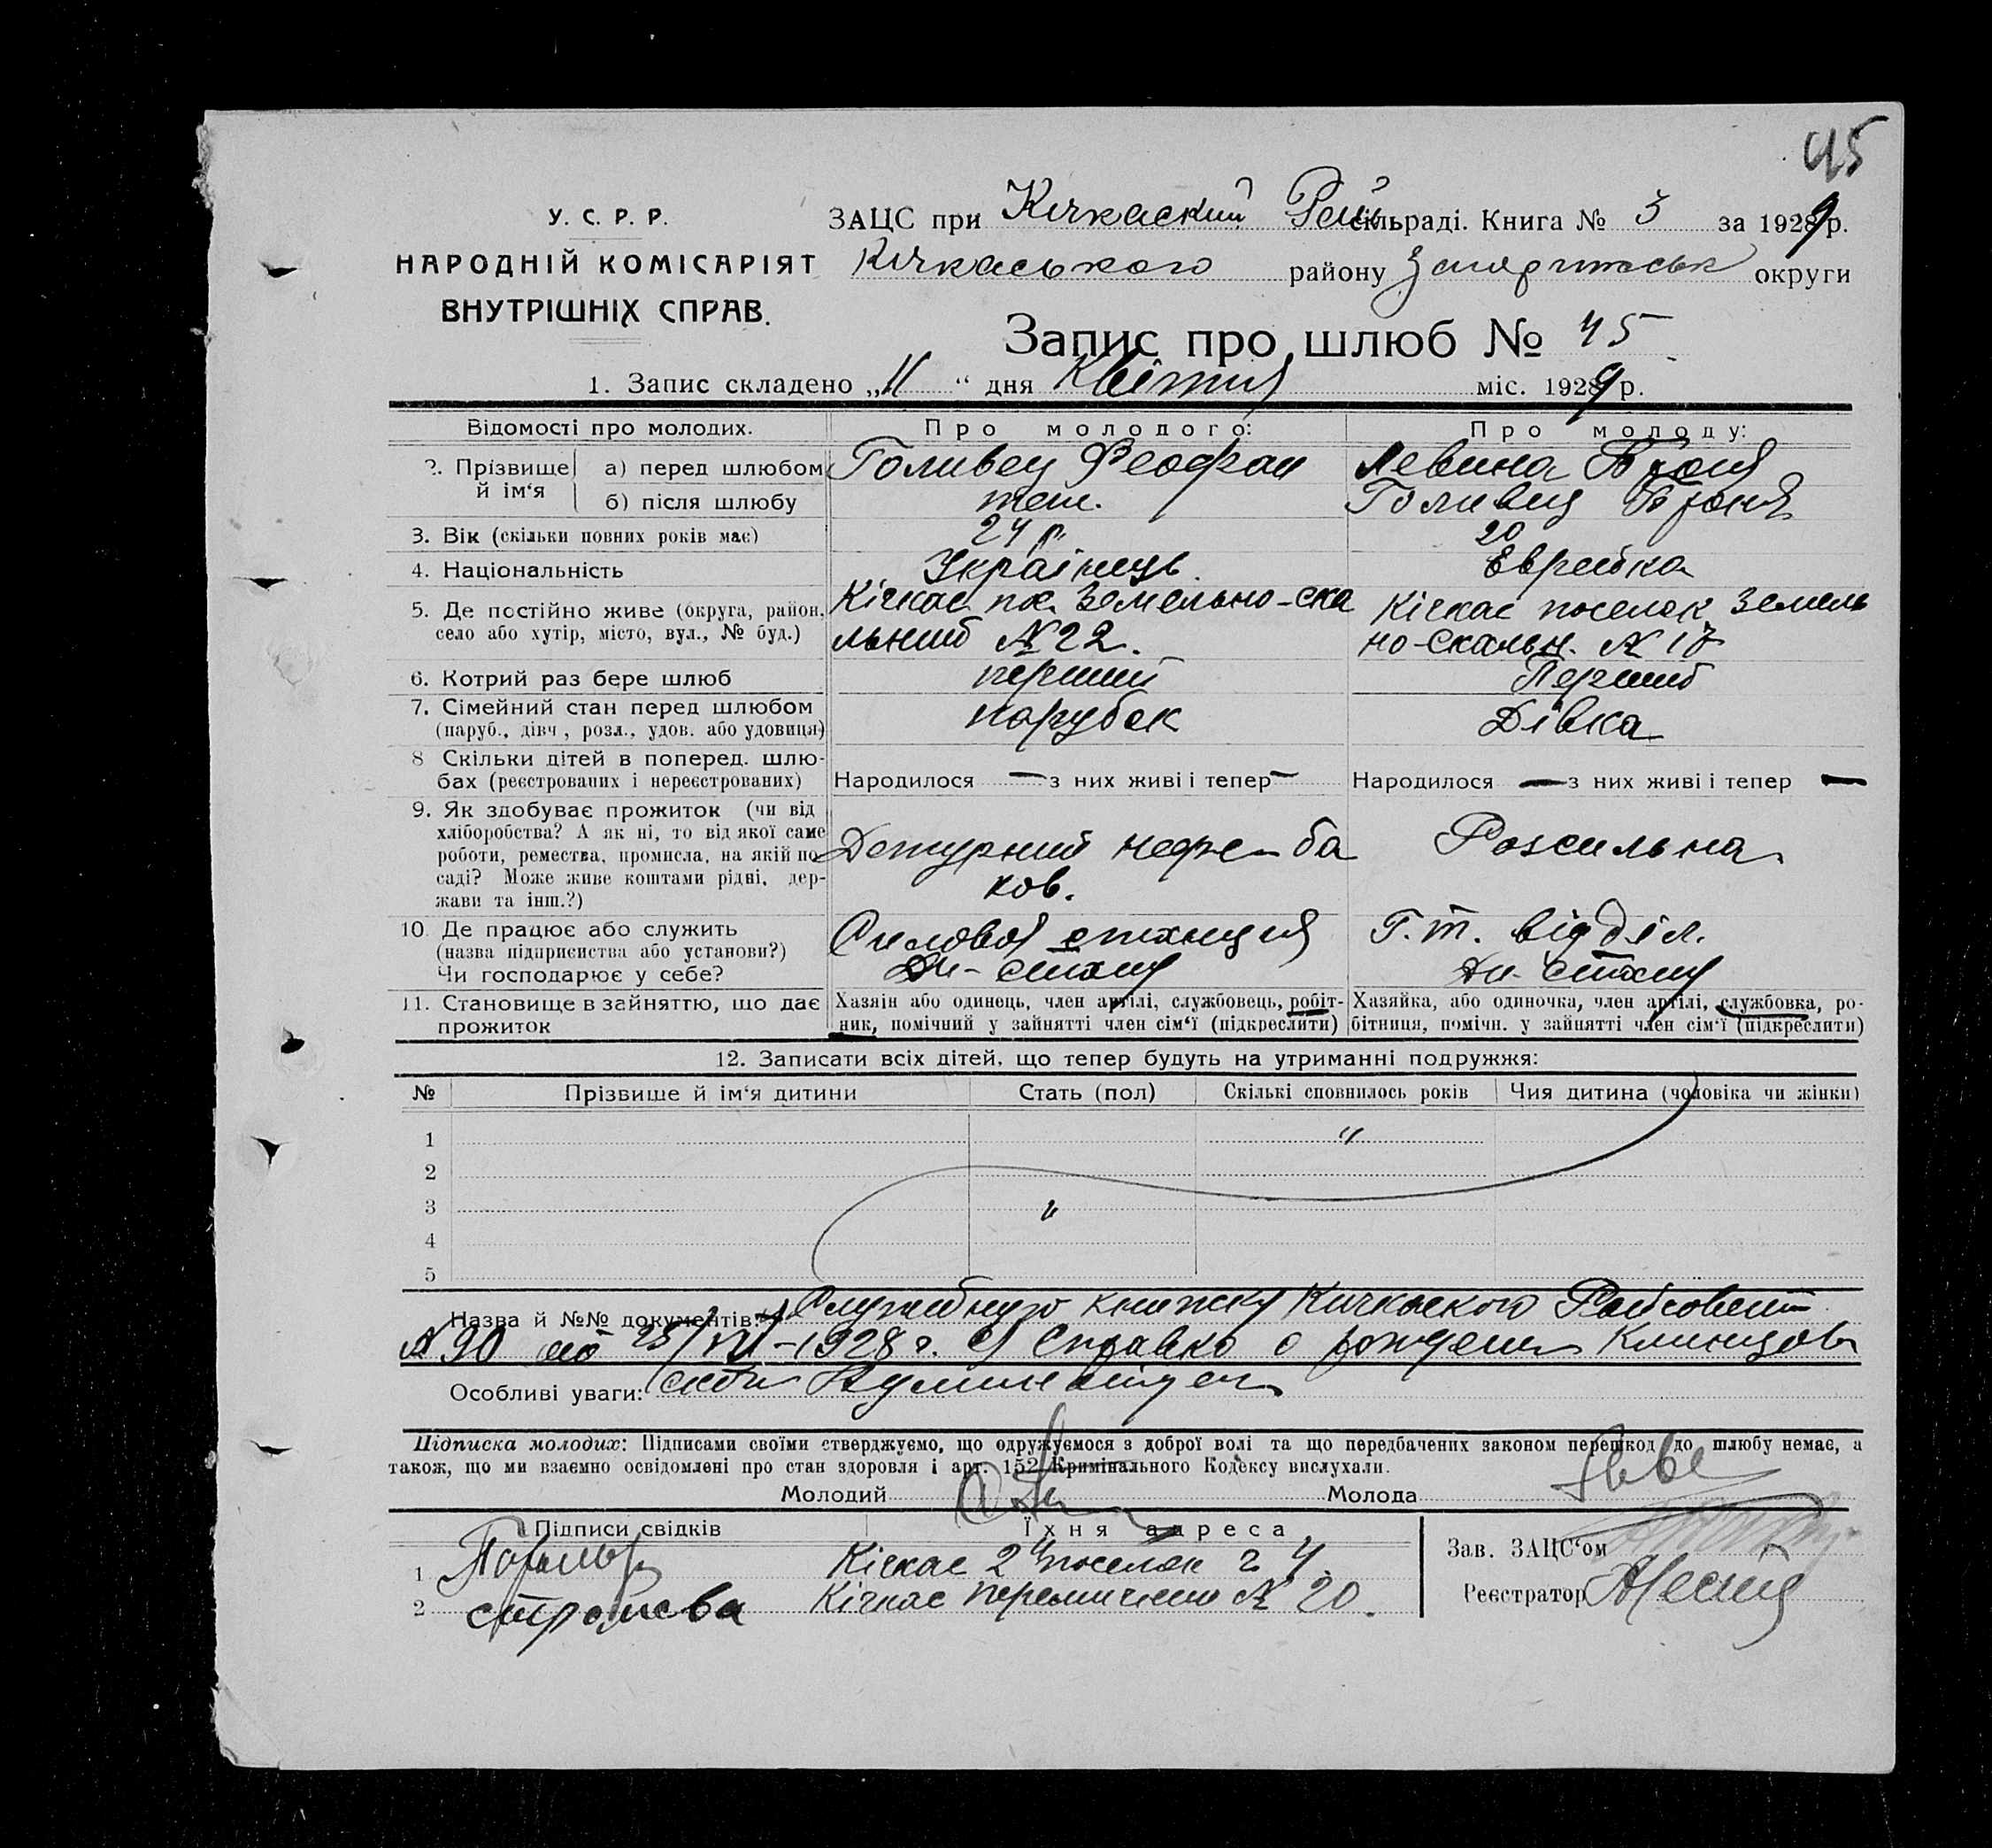 45
У. С. Р. Р.
НАРОДНІЙ КОМІСАРІЯТ
ВНУТРІШНІХ СПРАВ.
ЗАЦС при Кічкаский Рай сільраді. Книга № 3 за 1929 р.
Кічкаського району округи
Запис про шлюб № 45
1. Запис складено „11“ дня Квітня міс. 1929 р.
Відомості про молодих. Про молодого: Про молоду:
2. Прізвище й ім‘я а) перед шлюбом Голивец Феофан Левина Броня
б) після шлюбу теж. Голивец Броня
3. Вік (скільки повних років має) 24 р. 20
4. Національність Українець. Еврейка
5. Де постійно живе (округа, район, село або хутір, місто, вул., № буд.) Кічкас пос. Земельно-ска Кічкас поселок Земель
льний № 22. но-скальн. № 17
6. Котрий раз бере шлюб перший Перший
7. Сімейний стан перед шлюбом парубок Дівка
(паруб., дівч., розл., удов. або удовиця)
8 Скільки дітей в поперед. шлю-
бах (реєстрованих і нереєстрованих) Народилося — з них живі і тепер — Народилося — з них живі і тепер —
9. Як здобуває прожиток (чи від
хліборобства? А як ні, то від якої саме
роботи, ремества, промисла, на якій по- Дежурний нефте-ба Розсильна
саді? Може живе коштами рідні, дер- ков.
жави та інш.?)
10. Де працює або служить Силовоя станция Г.т. відділ.
(назва підприємства або установи?)
Чи господарює у себе?
11. Становище в зайняттю, що дає Хазяін або одинець, член артілі, службовець, робіт- Хазяйка, або одиночка, член артілі, службовка, ро-
прожиток ник, помічний у зайнятті член сім‘ї (підкреслити) бітниця, помічн. у зайнятті член сім‘ї (підкреслити)
12. Записати всіх дітей, що тепер будуть на утриманні подружжя:
№ Прізвише й ім‘я дитини Стать (пол) Скількі сповнилось років Чия дитина (чоловіка чи жінки)
1 „
2
3 „
4
5
Назва й №№ документів: Служебную книжку Кичкаского Райсовета
№ 90 от 25/VII-1928 г. Справка о рождении
Особливі уваги:
Підписка молодих: Підписами своїми стверджуємо, що одружуємося з доброї волі та що передбачених законом перешкод до шлюбу немає, а
також, що ми взаємно освідомлені про стан здоровля і арт. 152 Кримінального Кодексу вислухали.
Молодий Молода
Підписи свідків Їхня адреса Зав. ЗАЦС‘ом
1 Кічкас 2й поселок 4
2 Кічкас № 20. Реєстратор